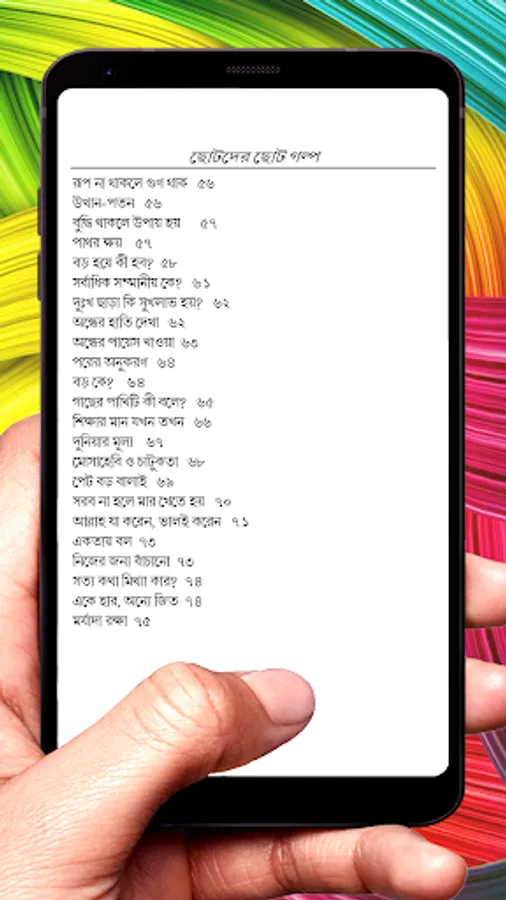 ছোটদের ছোট গল্প
রূপ না থাকলে গুণ থাক ৫৬
উত্থান-পতন ৫৬
বুদ্ধি থাকলে উপায় হয় ৫৭
পাথর ক্ষয় ৫৭
বড় হয়ে কী হব? ৫৮
সর্বাধিক সম্মানীয় কে? ৬১
দুঃখ ছাড়া কি সুখলাভ হয়? ৬২
অন্ধের হাতি দেখা ৬২
অন্ধের পায়েস খাওয়া ৬৩
পরের অনুকরণ ৬৪
বড় কে? ৬৪
গাছের পাখিটি কী বলে? ৬৫
শিক্ষার মান যখন তখন ৬৬
দুনিয়ার মূল্য ৬৭
মোসাহেবি ও চাটুকতা ৬৮
পেট বড় বালাই ৬৯
সরব না হলে মার খেতে হয় ৭০
আল্লাহ যা করেন, ভালই করেন ৭১
একতায় বল ৭৩
নিজের জন্য বাঁচানো ৭৩
সত্য কথা মিথ্যা কার? ৭৪
একে হার, অন্যে জিত ৭৪
মর্যাদা রক্ষা ৭৫